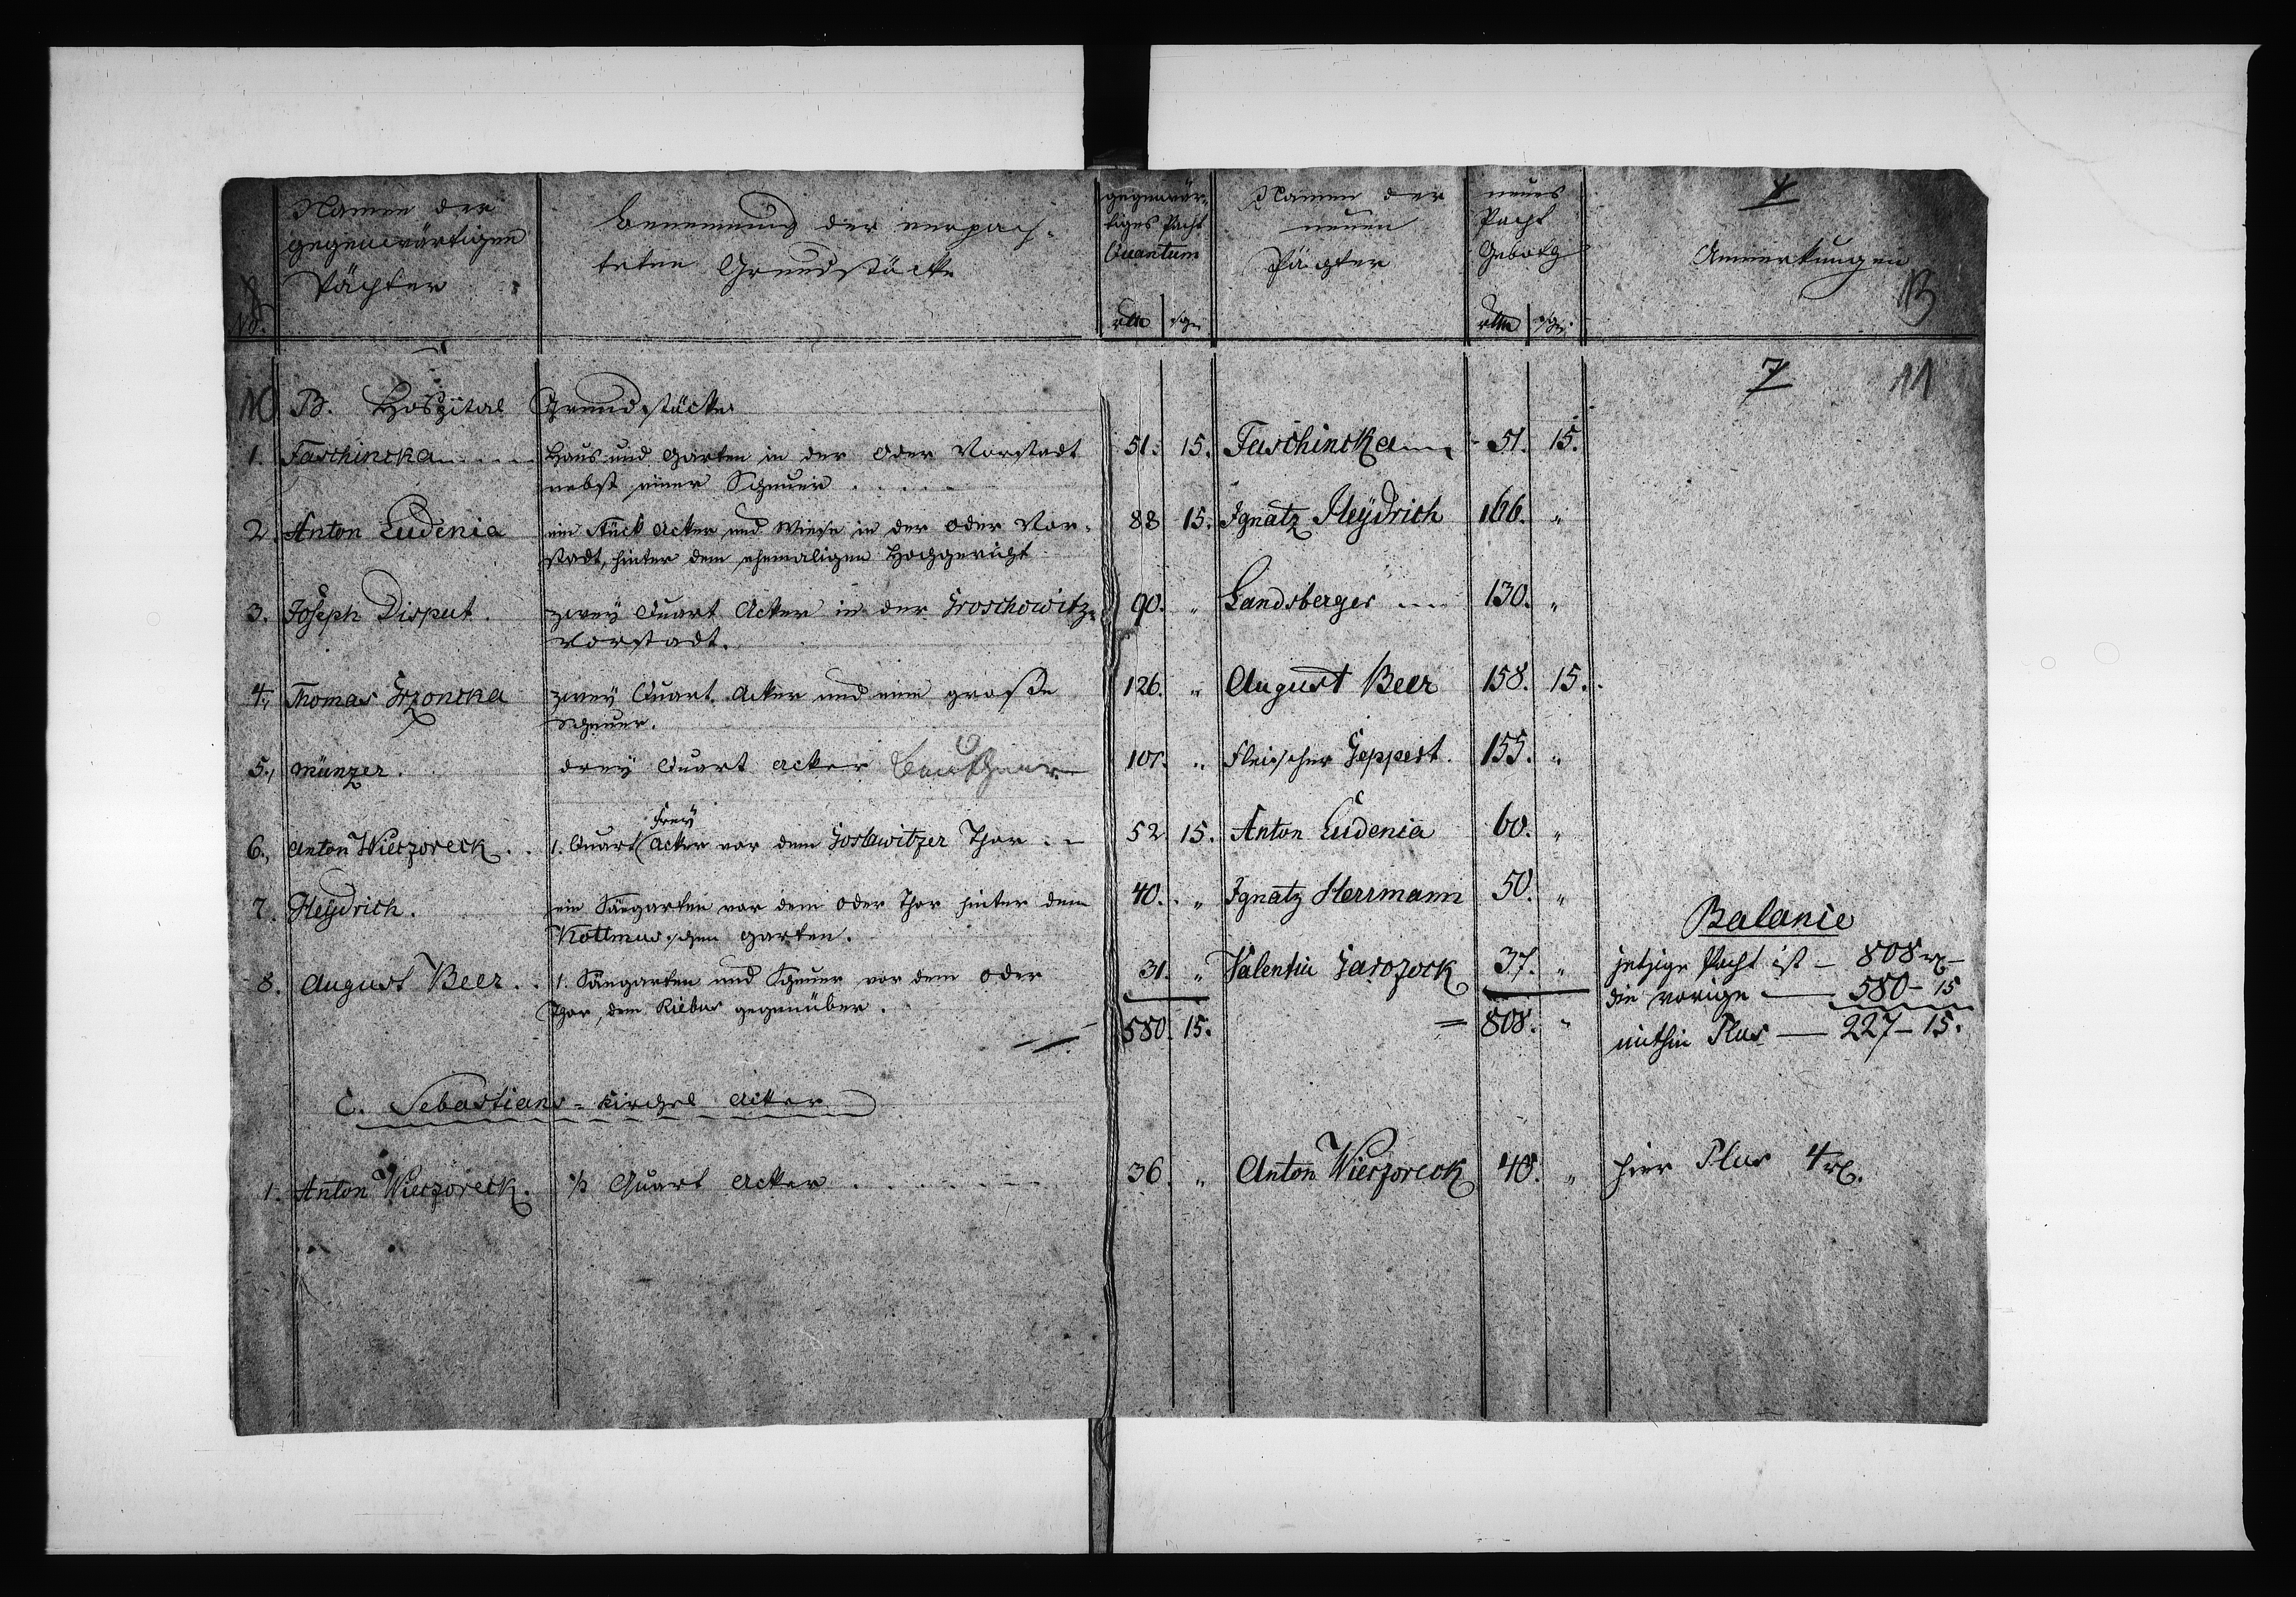 Namen der
gegenwärtigen
Pächter
No.
Benennung der verpach-
teten Grundstücke
gegenwär-
tiges Pacht
Quantum
rtlr sgr
Namen der
neuen
Pächter
neues
Pacht
Geboth
rtlr sgr
Anmerkungen
13
7 11
10 B. Hospital Grundstücke
1. Faschincka Haus und Garten in der Oder Vorstadt 51. 15. Faschincka 51. 15.
nebst einer Scheuer
2. Anton Eudenia ein Stück Acker und Wiese in der Oder Vor- 88 15. Ignatz Heydrich 166. "
stadt, hinter dem ehemaligen Hochgericht
3. Joseph Disput. zwey Quart Acker in der Groschowitz- 90. " Landsberger 130. "
vorstadt.
4. Thomas Grzoncka zwey Quart Acker und eine große 126. " August Beer 158. 15.
Scheuer.
5. Münzer. drey Quart Acker 101. " Fleischer Geppert. 155. "
Frey
6. Anton Wieczoreck 1. Quart Acker vor dem Goslawitzer Thor 52. 15. Anton Eudenia 60. "
7. Heydrich. ein Säegarten vor dem Oder Thor hinter dem 40. " Ignatz Herrmann 50. "
Kottmaschen Garten.
8. August Beer 1. Säegarten und Scheuer vor dem Oder 31. " Valentin 37. "
Thor, dem gegenüber.
580. 15. = 808. "
Balance
jetzige Pacht ist — 808 rtl —
die vorige — 580 — 15
mithin Plus — 227 — 15.
C. Sebastians-Kirchel Acker
1. Anton Wieczoreck. ½ Quart Acker 36. " Anton Wieczoreck 40. " hier Plus 4 rtl.